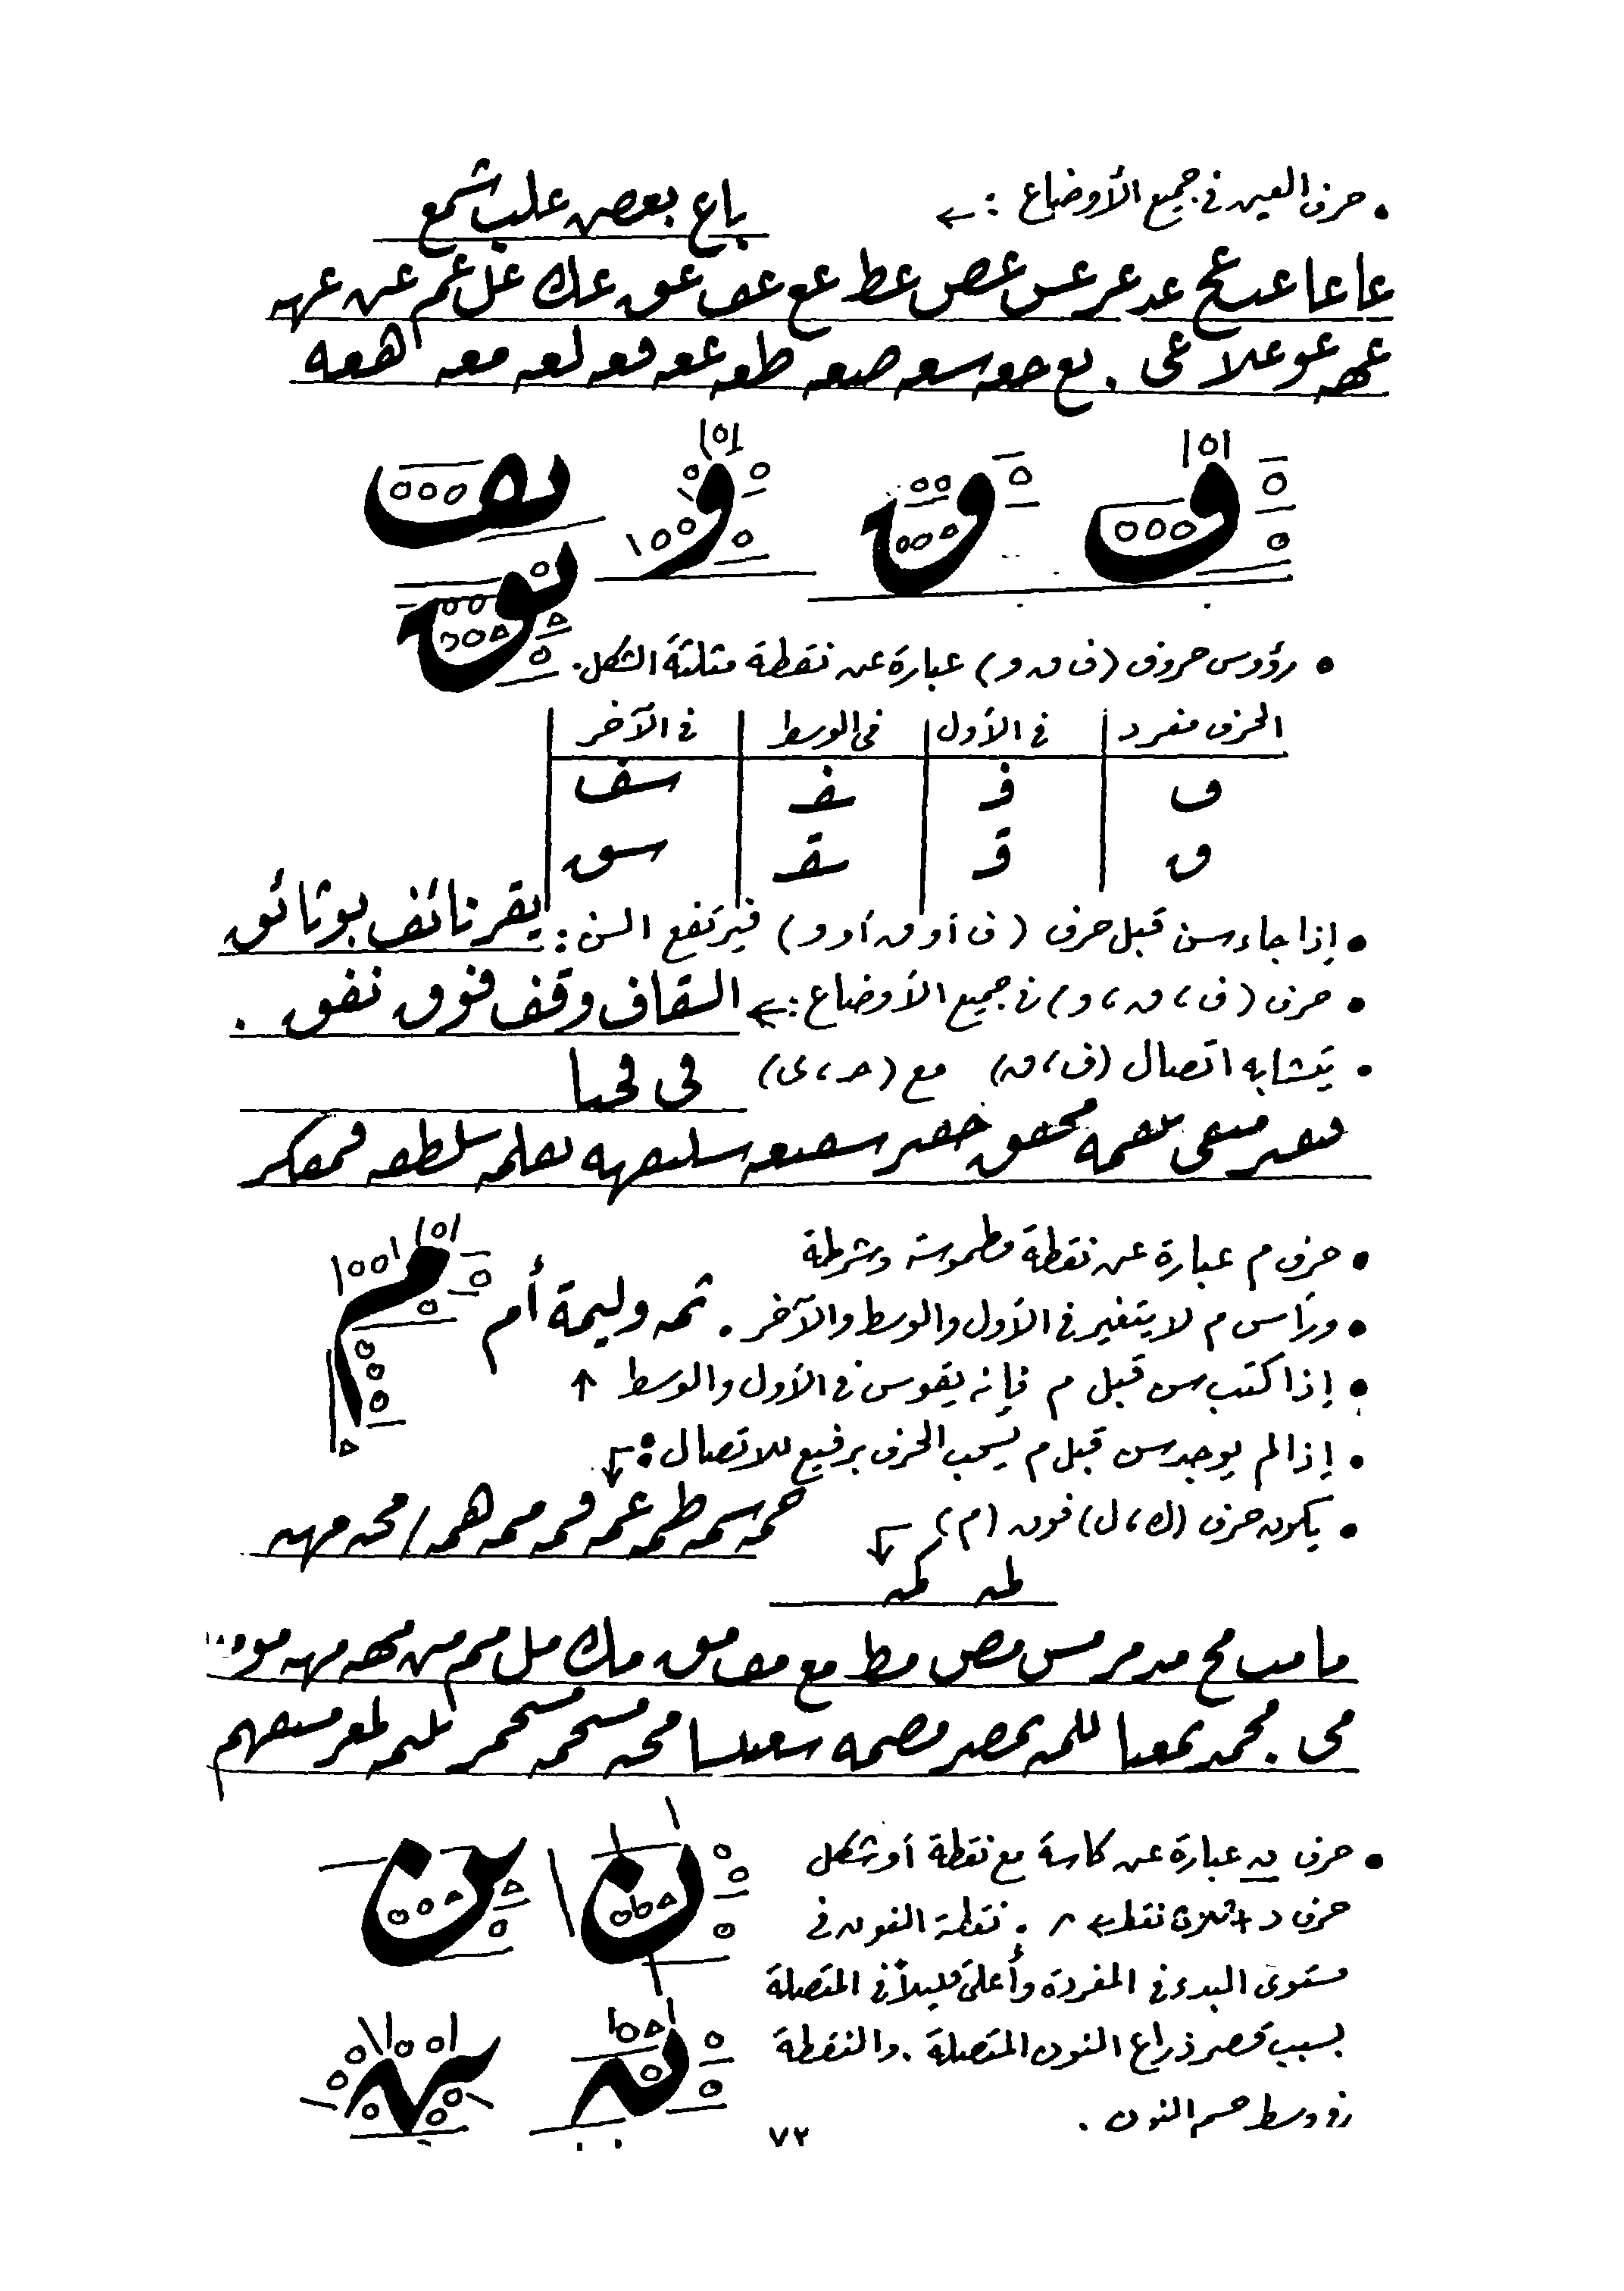 • حرف العين في جميع الأوضاع : ← باع بعض علب شمع
عا عا عب عح عد عر عس عص عط عع عف عق عك عل عم عن عه
عهـ عو علا عى . بع حعه سعه صعه طعه ععه فعه لعه معه هعه
ف ق و ف ق
• رؤوس حروف (ف ق و) عبارة عن نقطة مثلثة الشكل.
الحرف مفرد | في الأول | في الوسط | في الآخر
ف | فـ | ـفـ | سف
ق | قـ | ـقـ | سق
• إذا جاء سن قبل حرف (ف أو ق أو و) فيرتفع السن : يقر نائف بوثائق
• حرف (ف، ق، و) في جميع الأوضاع :← السقاف وقف فوق نفق .
• يتشابه اتصال (ف، ق) مع (حـ، ى) فى فحيا
• حرف م عبارة عن نقطة مطموسة وشرطة
• ورأس م لا يتغير في الأول والوسط والآخر . ثمه وليمة أم
• إذا كتب سن قبل م فإنه يقوس في الأول والوسط ↑
• إذا لم يوجد سن قبل م يسحب الحرف برفيع للاتصال : ↓
حمه سمه طمه عمه فمه ممه همه / محه مهه
• يكون حرف (ك، ل) فوق (م) ↓
لمه كمه
ما مب مح مد مر مس مص مط مع مف مق مك مل مم من مهـ مه مو ...
• حرف ن عبارة عن كاسة مع نقطة أو شكل
حرف د + ثلاث نقط ← ^ . نقطة النون في
مستوى البدء في المفردة وأعلى قليلاً في المتصلة
بسبب قصر ذراع النون المتصلة . والنقطة
في وسط جسم النون .
ن ن
٧٢